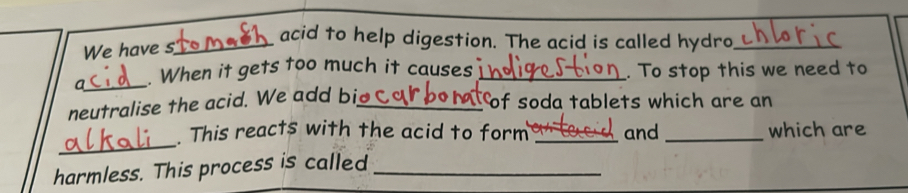 We have stomach acid to help digestion. The acid is called hydrochloric
acid. When it gets too much it causes indigestion. To stop this we need to
neutralise the acid. We add biocarbonate of soda tablets which are an
alkali. This reacts with the acid to form antacid and ________ which are
harmless. This process is called ________